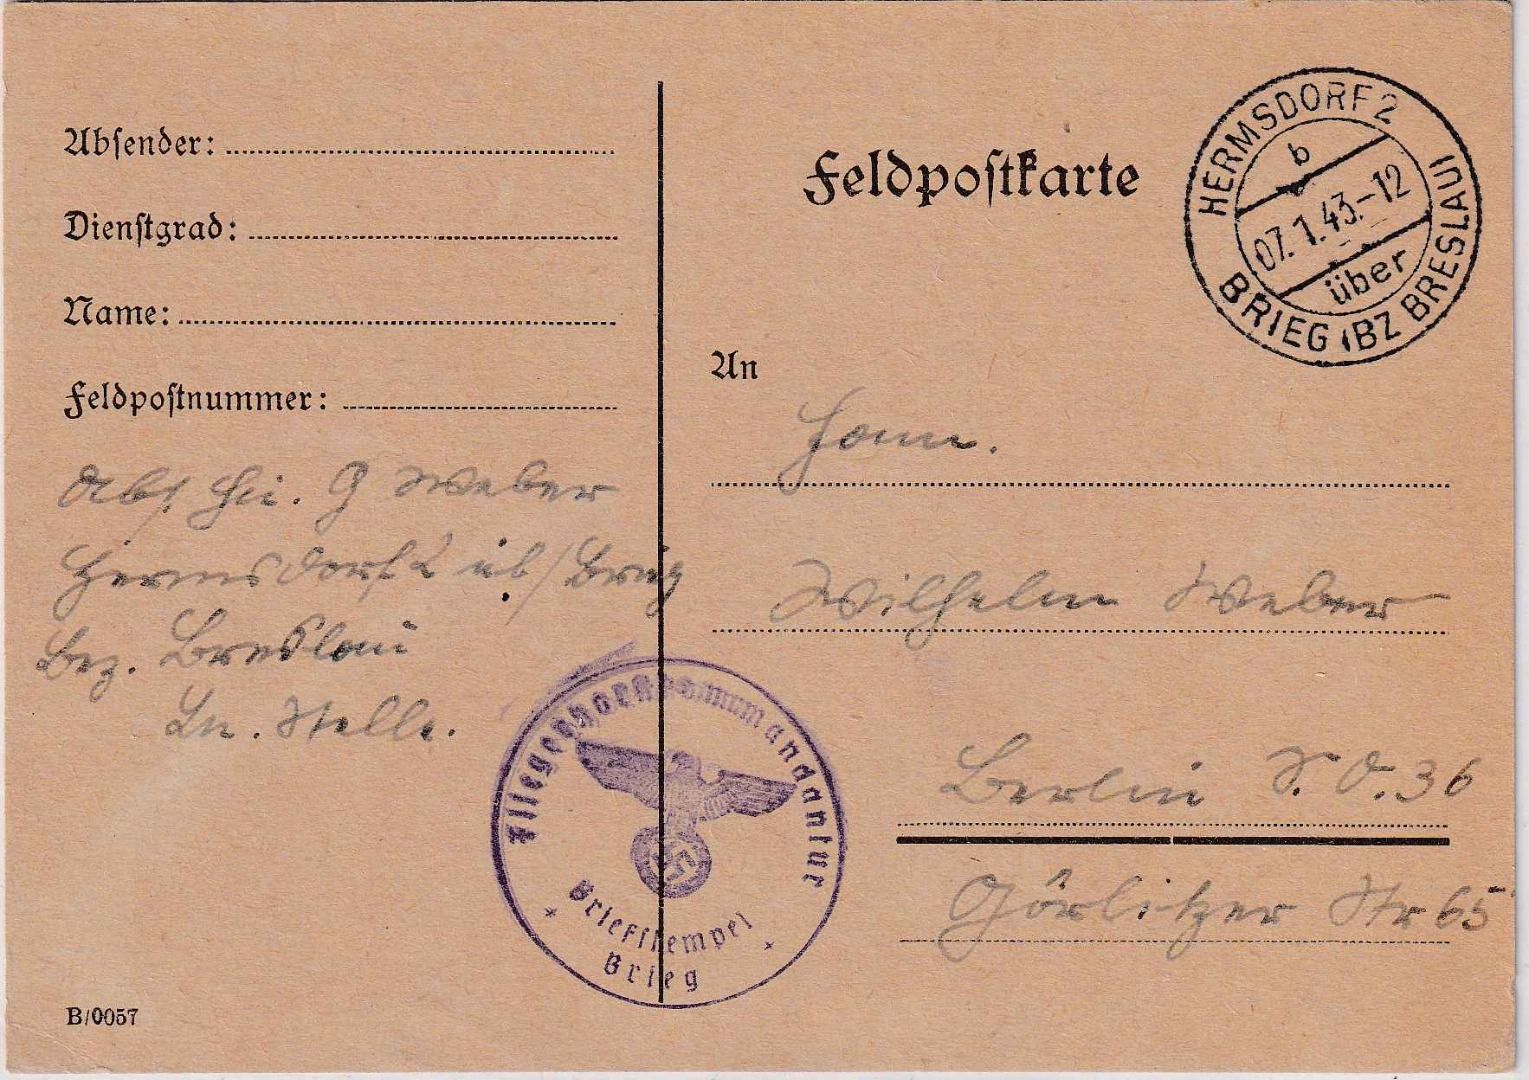 Absender:
Dienstgrad:
Name:
Feldpostnummer:
Abs. G Weber
Hermsdorf 2 üb/Brieg
Bez. Breslau
Ln. Stelle.
Feldpostkarte
HERMSDORF 2
b
07.1.43.-12
über
BRIEG (BZ BRESLAU)
An
Wilhelm Weber
Berlin S.O.36
Görlitzer Str 65
Fliegerhorstkommandantur
Briefstempel
Brieg
B/0057